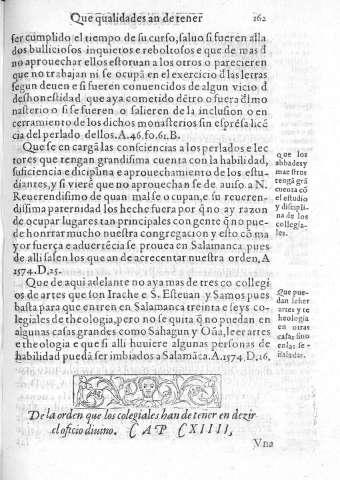 Que qualidades an de tener 162
ser cumplido el tiempo de su curso, saluo si fueren alla
dos bulliciosos inquietos e reboltosos e que de mas đ
no aprouechar ellos estoruan a los otros o parecieren
que no trabajan ni se ocupã en el exercicio đ las letras
segun deuen e si fueren conuencidos de algun vicio đ
deshonestidad que aya cometido dẽtro o fuera đl mo
nasterio o si se fueren o salieren de la inclusion o en
cerramiento de los dichos monasterios sin espresa licẽ
cia del perlado dellos. A. 46. fo. 61. B.
Que se en cargã las consciencias a los perlados e lec
tores que tengan grandisima cuenta con la habilidad,
suficiencia e diciplina e aprouechamiento de los estu-
diantes, y si vierẽ que no aprouechan se de auiso a N.
Reuerendisimo de quan mal se ocupan, e su reueren-
dissima paternidad los heche fuera por q̃ no ay razon
de ocupar lugares tan principales con gente q̃ no pue-
de honrrar mucho nuestra congregacion y esto cõ ma
yor fuerça e aduertẽcia se prouea en Salamanca, pues
de alli salen los que an de acrecentar nuestra orden. A
1574. D. 25.
Que de aqui adelante no aya mas de tres co collegi
os de artes que son Irache e S. Esteuan y Samos pues
basta para que entren en Salamanca treinta e seys co-
llegiales de theologia, pero no se quita q̃ no puedan en
algunas casas grandes como Sahagun y Oña, leer artes
e theologia e que si alli huuiere algunas personas de
habilidad puedã ser imbiados a Salamãca. A. 1574. D. 26.
Que los
abbades y
maestros
tengã grã
cuenta cõ
el estudio
y discipli-
na de los
collegia-
les.
Que pue-
dan leher
artes y te
heologia
en otras
casas sino
en las se-
ñaladas.
De la orden que los colegiales han de tener en dezir
el oficio diuino. CAP CXIIII,
Vna